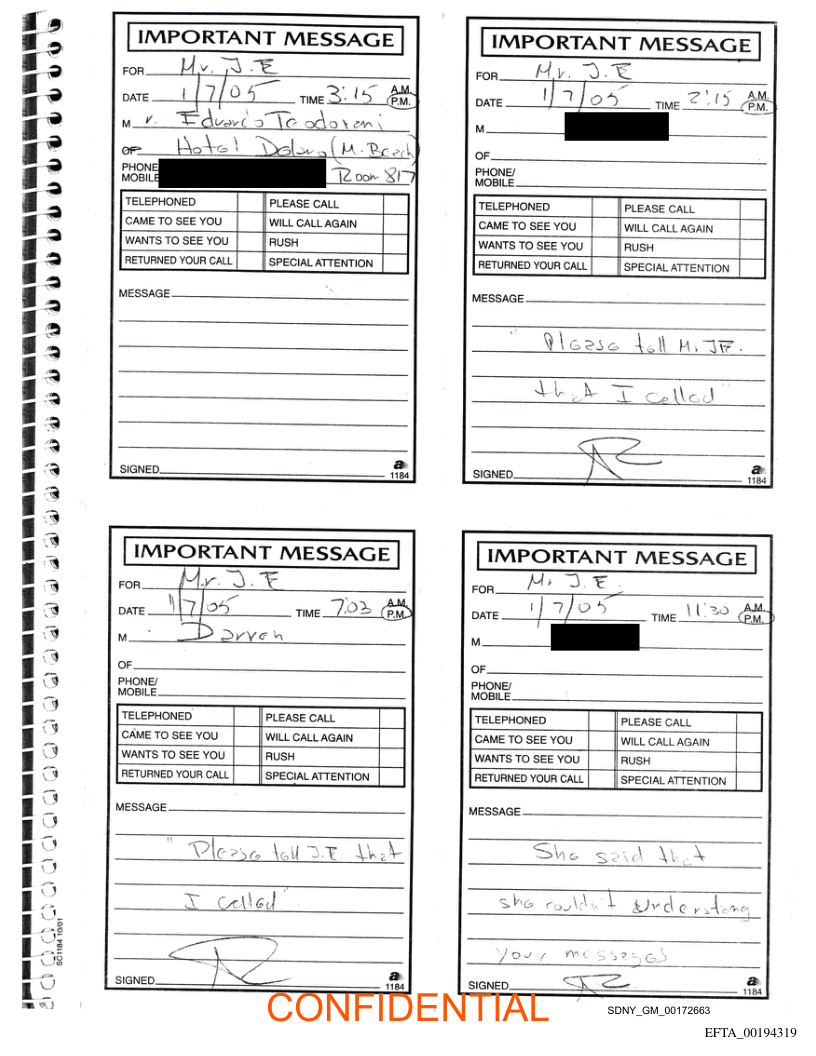 IMPORTANT MESSAGE
FOR Mr. J.E
DATE 1/7/05 TIME 3:15 A.M. P.M.
M r.
OF Hotel (M. Beach)
PHONE MOBILE Room 817
TELEPHONED PLEASE CALL
CAME TO SEE YOU WILL CALL AGAIN
WANTS TO SEE YOU RUSH
RETURNED YOUR CALL SPECIAL ATTENTION
MESSAGE
SIGNED
a 1184
IMPORTANT MESSAGE
FOR Mr. J.E
DATE 1/7/05 TIME 2:15 A.M. P.M.
M
OF
PHONE/
MOBILE
TELEPHONED PLEASE CALL
CAME TO SEE YOU WILL CALL AGAIN
WANTS TO SEE YOU RUSH
RETURNED YOUR CALL SPECIAL ATTENTION
MESSAGE
"Please tell M. JE.
that I called"
SIGNED
a 1184
IMPORTANT MESSAGE
FOR Mr. J.E
DATE 1/7/05 TIME 7:03 A.M. P.M.
M Darren
OF
PHONE/
MOBILE
TELEPHONED PLEASE CALL
CAME TO SEE YOU WILL CALL AGAIN
WANTS TO SEE YOU RUSH
RETURNED YOUR CALL SPECIAL ATTENTION
MESSAGE
"Please tell J.E. that
I called"
SIGNED
a 1184
IMPORTANT MESSAGE
FOR M. J.E.
DATE 1/7/05 TIME 11:30 A.M. P.M.
M
OF
PHONE/
MOBILE
TELEPHONED PLEASE CALL
CAME TO SEE YOU WILL CALL AGAIN
WANTS TO SEE YOU RUSH
RETURNED YOUR CALL SPECIAL ATTENTION
MESSAGE
She said that
she couldn't understang
your messages
SIGNED
a 1184
SC1184 10/01
CONFIDENTIAL
SDNY_GM_00172663
EFTA_00194319